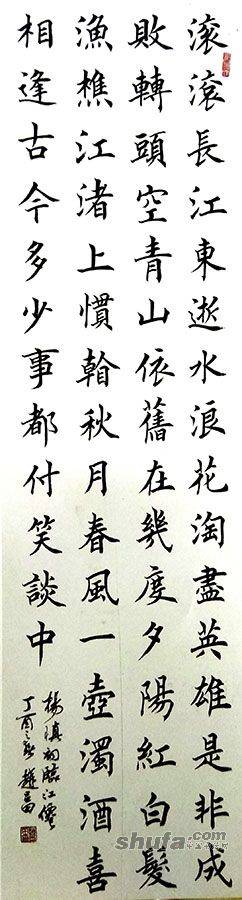 滚滚長江東逝水浪花淘盡英雄是非成
敗轉頭空青山依舊在幾度夕陽紅白髮
漁樵江渚上慣翰秋月春風一壺濁酒喜
相逢古今多少事都付笑談中
楊慎詞臨江僊
丁酉
shufa.com